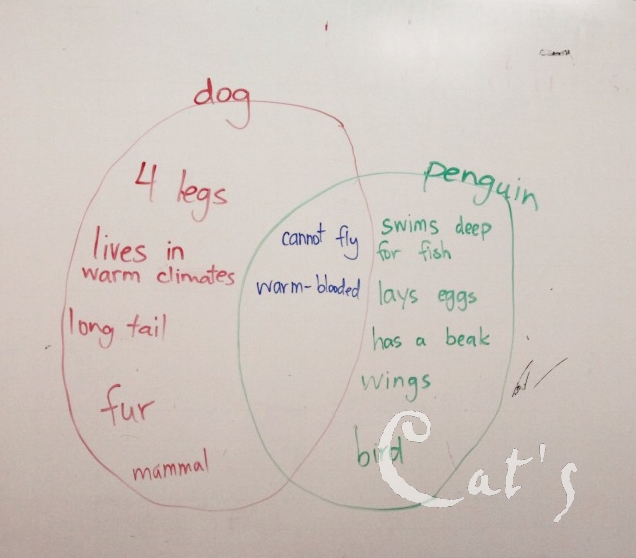 dog
4 legs
lives in
warm climates
long tail
fur
mammal
cannot fly
warm-blooded
penguin
swims deep
for fish
lays eggs
has a beak
wings
bird
Cat's